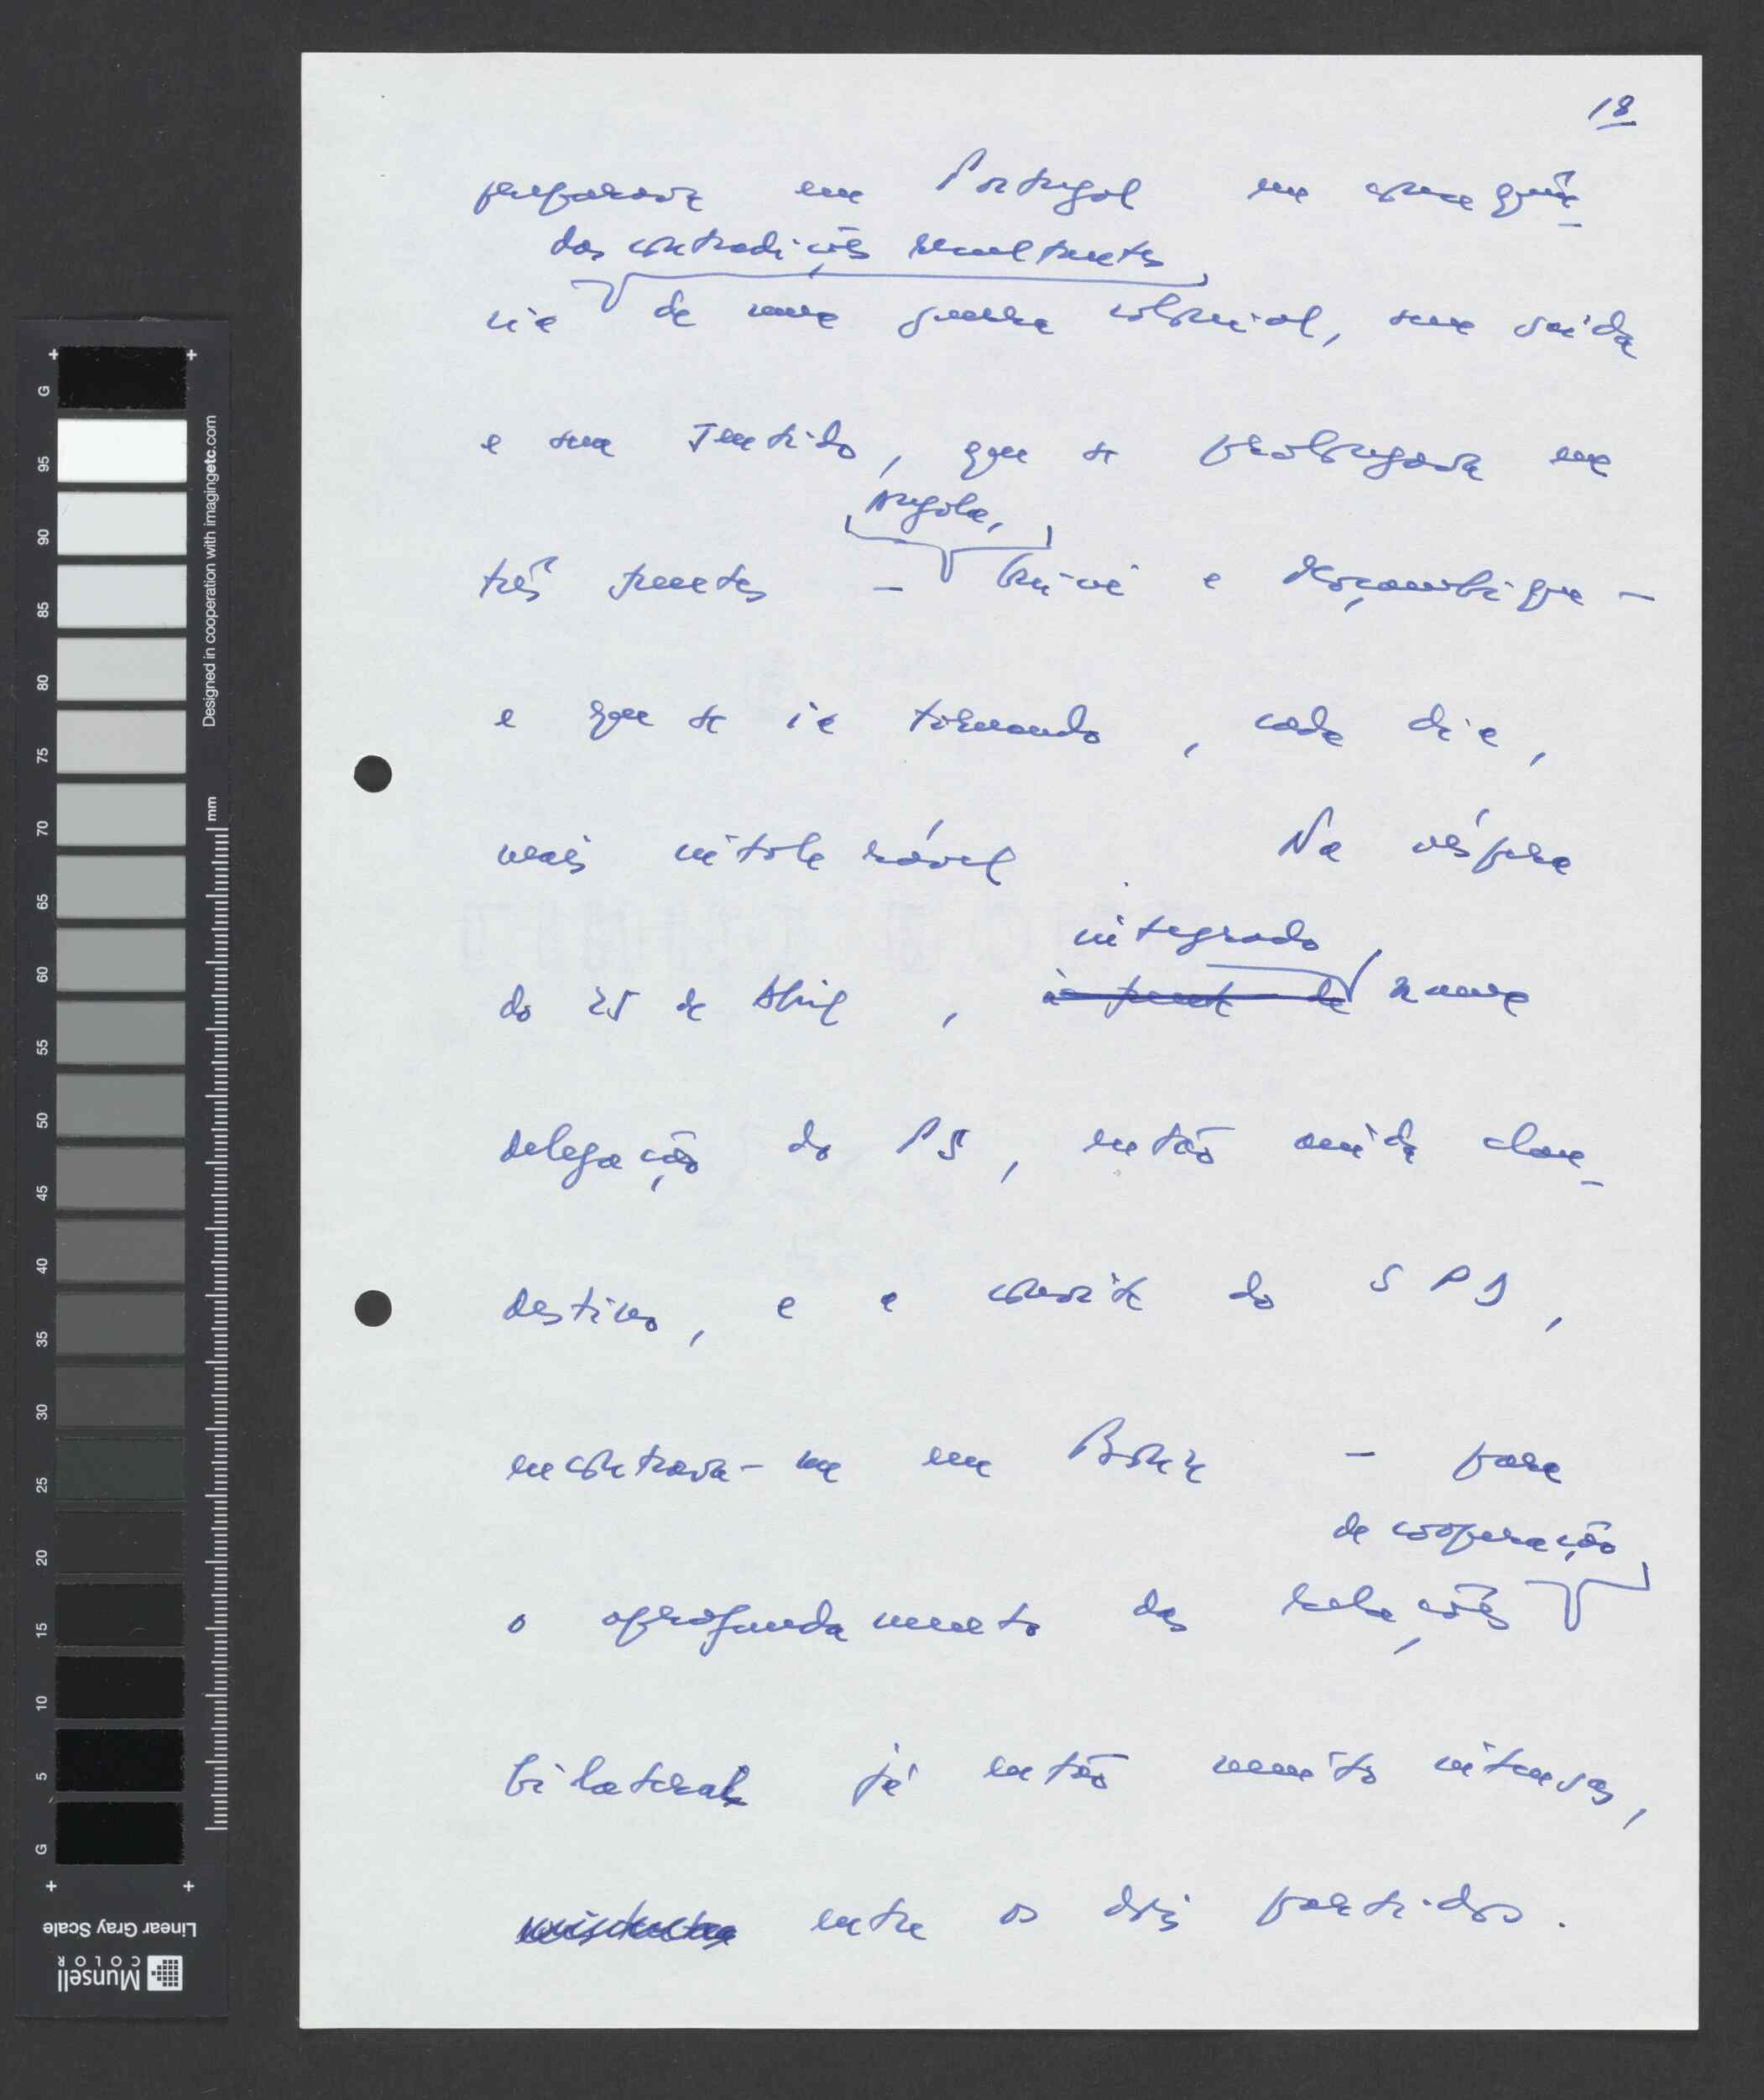 18
preparava em Portugal em consequên-
das contradições resultantes
cia de uma guerra colonial, sem saída
e sem sentido, que se prolongava em
Angola,
três frentes - Guiné e Moçambique -
e que se ia tornando, cada dia,
mais intolerável. Na véspera
integrado
do 25 de Abril, à frente de numa
delegação do PS, então ainda clan-
destino, e a convite do SPD,
encontrava-me em Bona - para
de cooperação
o aprofundamento das relações
bilaterais já então muito intensas,
existentes entre os dois partidos.
G
95
90
85
80
75
70
65
60
55
50
45
40
35
30
25
20
15
10
5
G
Designed in cooperation with imagingetc.com
mm
Linear Gray Scale
Munsell
COLOR